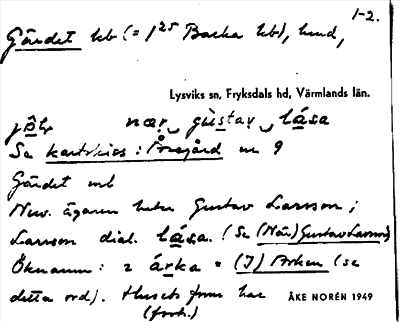 1-2.
Gärdet hb (= 1²⁵ Backa hb), hmd,
Lysviks sn, Fryksdals hd, Värmlands län.
næṛ‿gùstaṛ‿lása
Se kartskiss: Åregård nr 9
Gärdet mb
Nuv. ägaren heter Gustav Larsson;
Larsson dial. lása. (Se (När) Gustav Larsson)
Öknamn: 2 árka = (I) Arken (se
detta ord). Husets form har
(forts.)
ÅKE NORÉN 1949